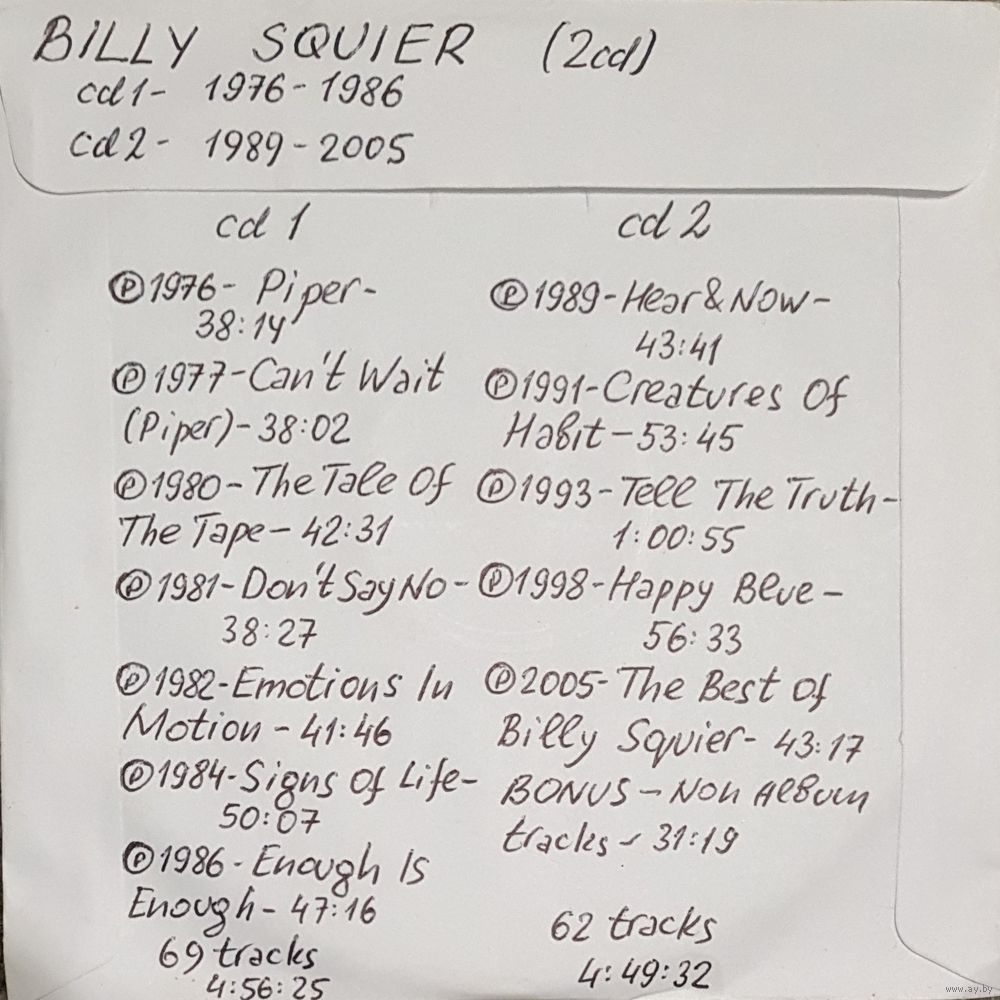 BILLY SQUIER (2cd)
cd1- 1976-1986
cd2- 1989-2005
cd 1
Ⓟ1976- Piper-
38:14
Ⓟ1977-Can't Wait
(Piper)-38:02
Ⓟ1980-The Tale Of
The Tape- 42:31
Ⓟ1981-Don't Say No-
38:27
Ⓟ1982-Emotions In
Motion - 41:46
Ⓟ1984-Signs Of Life-
50:07
Ⓟ1986-Enough Is
Enough- 47:16
69 tracks
4:56:25
cd 2
Ⓟ1989-Hear&Now-
43:41
Ⓟ1991-Creatures Of
Habit-53:45
Ⓟ1993-Tell The Truth-
1:00:55
Ⓟ1998-Happy Blue-
56:33
Ⓟ2005-The Best Of
Billy Squier- 43:17
BONUS - Non Album
tracks - 31:19
62 tracks
4:49:32
www.ay.by